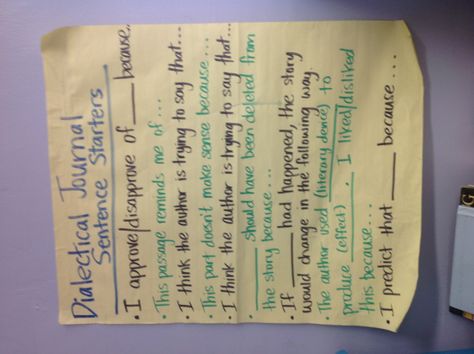 Dialectical Journal
Sentence Starters
• I approve/disapprove of ____ because...
• This passage reminds me of...
• I think the author is trying to say that...
• This part doesn't make sense because...
• I think the author is trying to say that...
• ____ should have been deleted from
the story because...
• If ____ had happened, the story
would change in the following way.
• The author used (literary device) to
produce (effect). I liked/disliked
this because...
• I predict that ____ because...